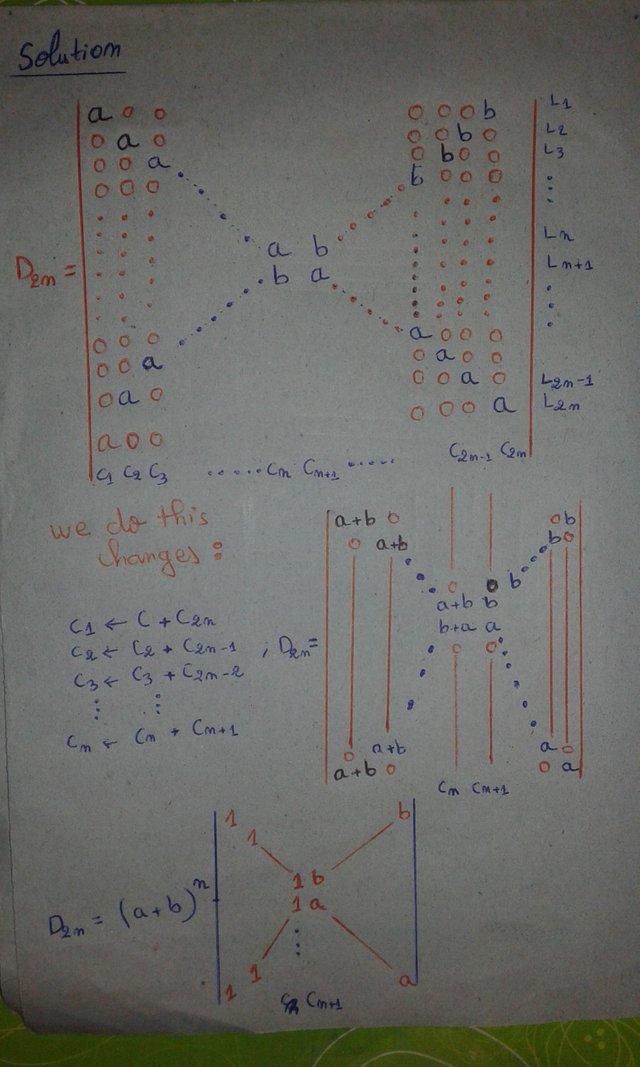 Solution
a 0 0 0 0 0 b L1
0 a 0 0 0 b 0 L2
0 0 a 0 b 0 0 L3
0 0 0 b 0 0 0
a b Ln
D2n =
b a Ln+1
0 0 0 a 0 0 0
0 0 a 0 a 0 0
0 a 0 0 0 a 0 L2n-1
a 0 0 0 0 0 a L2n
C1 C2 C3 ...... Cn Cn+1 ...... C2n-1 C2n
we do this
changes :
C1 ← C + C2n
C2 ← C2 + C2n-1
C3 ← C3 + C2n-2
⋮ ⋮
Cn ← Cn + Cn+1
; D2n =
a+b 0 0 b
0 a+b b 0
0 0 b
a+b b
b+a a
0 0
0 a+b a 0
a+b 0 0 a
Cn Cn+1
D2n = (a+b)^n
1 b
1
1 b
1 a
⋮
1
1 a
Cn Cn+1